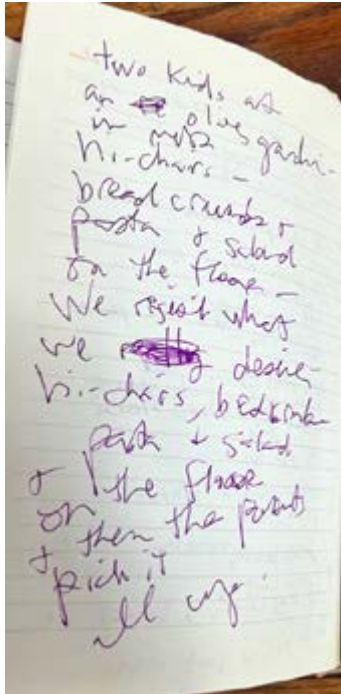 two kids at
an olive garden
in
hi-chairs –
bread crumbs +
pasta + salad
on the floor –
We reject what
we desire
hi-chairs,
pasta + salad
+ the floor
on
+ then the parents
pick it
all up.